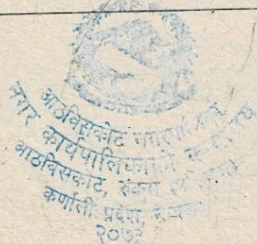 आठबिसकोट नगरपालिका
नगर कार्यपालिकाको कार्यालय
आठबिसकोट, रुकुम
कर्णाली प्रदेश, नेपाल
२०७३